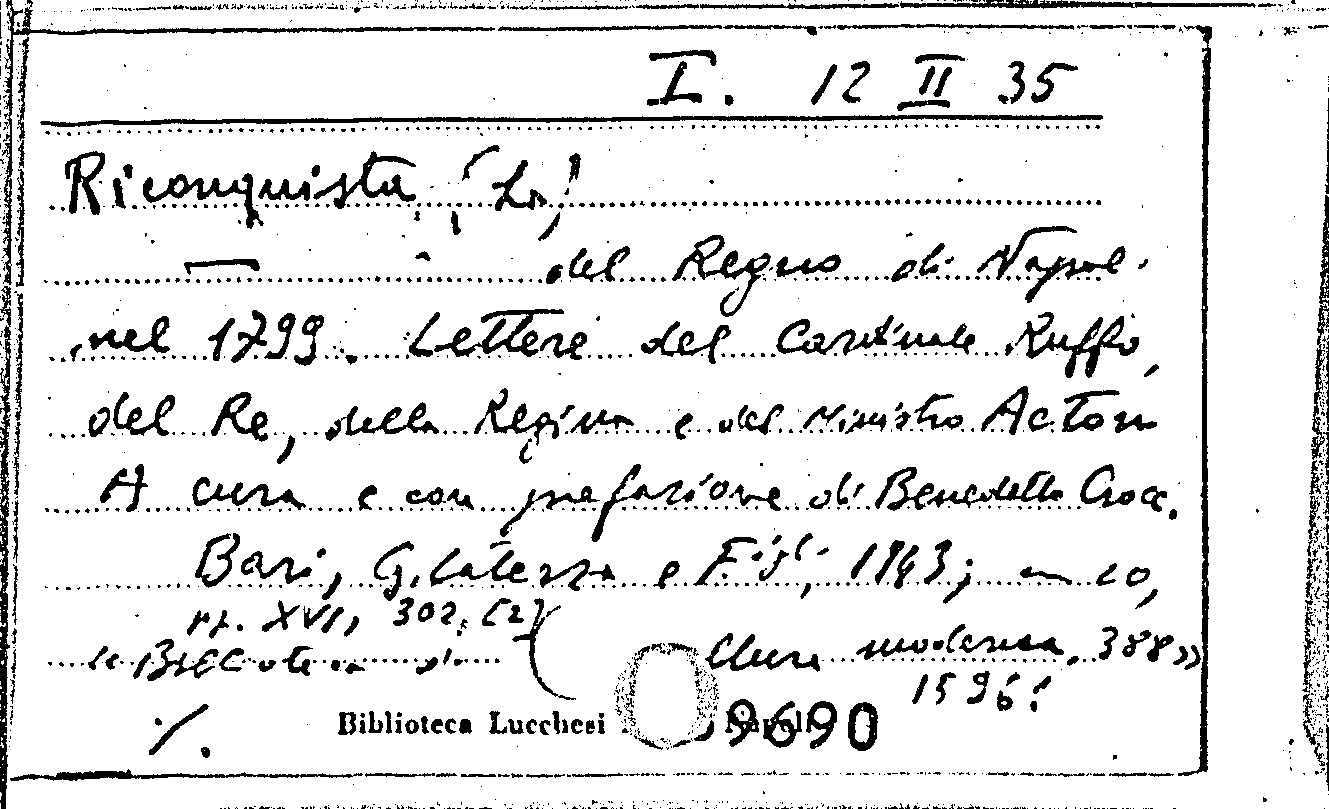 I. 12 II 35
Riconquista, (La)
— del Regno di Napoli
nel 1799. Lettere del Cardinale Ruffo,
del Re, della Regina e del Ministro Acton
A cura e con prefazione di Benedetto Croce.
Bari, G. Laterza e Figli, 1943; in 10,
pp. XVI, 302, [2]
« Biblioteca di
moderna, 388»
15961
Biblioteca Lucchesi
9690